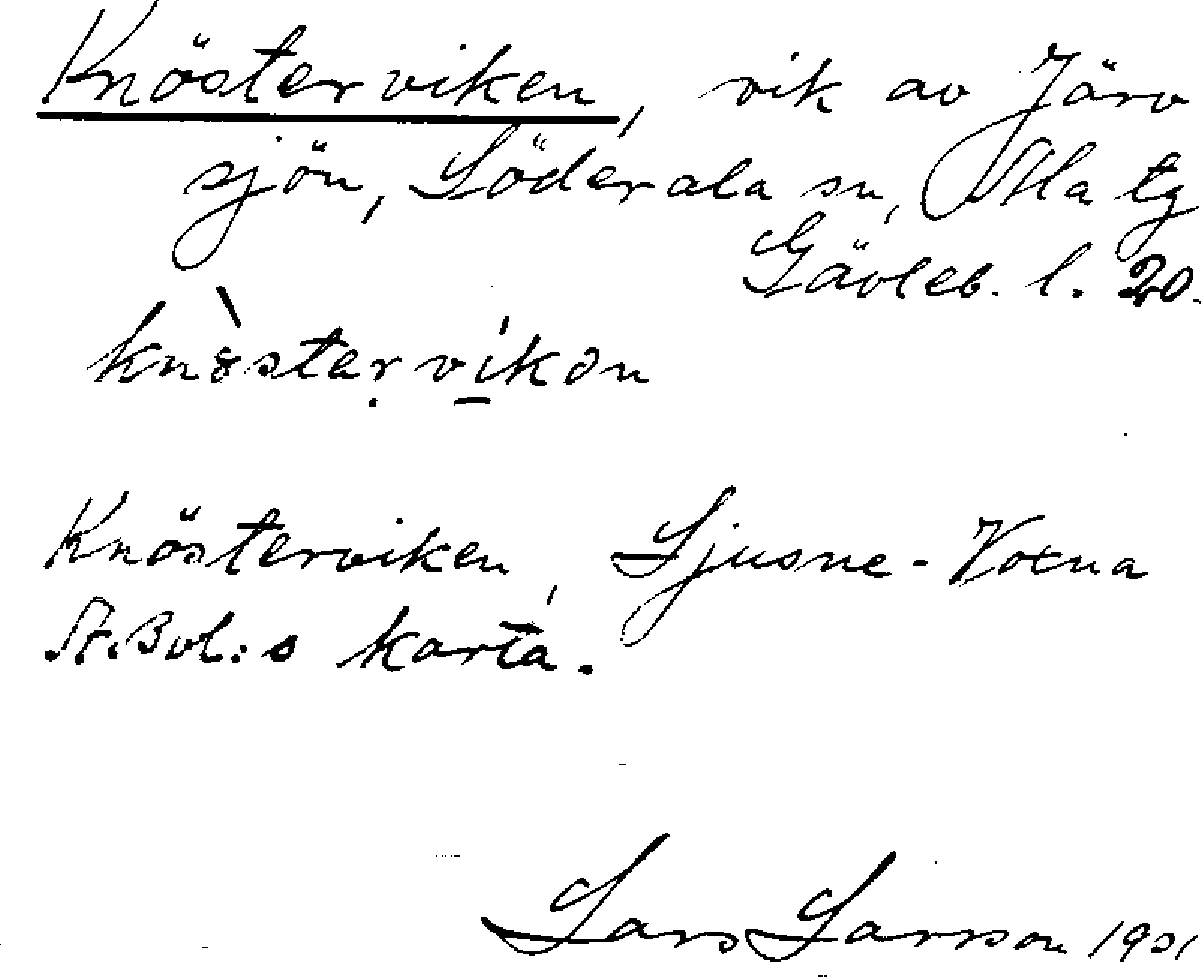 Knösterviken, vik av Järv
sjön, Söderala sn, Ala tg
Gävleb. l. 20.
knöstervikən
Knösterviken, Ljusne-Voxna
St. Bol:s karta.
Lars Larsson 1931